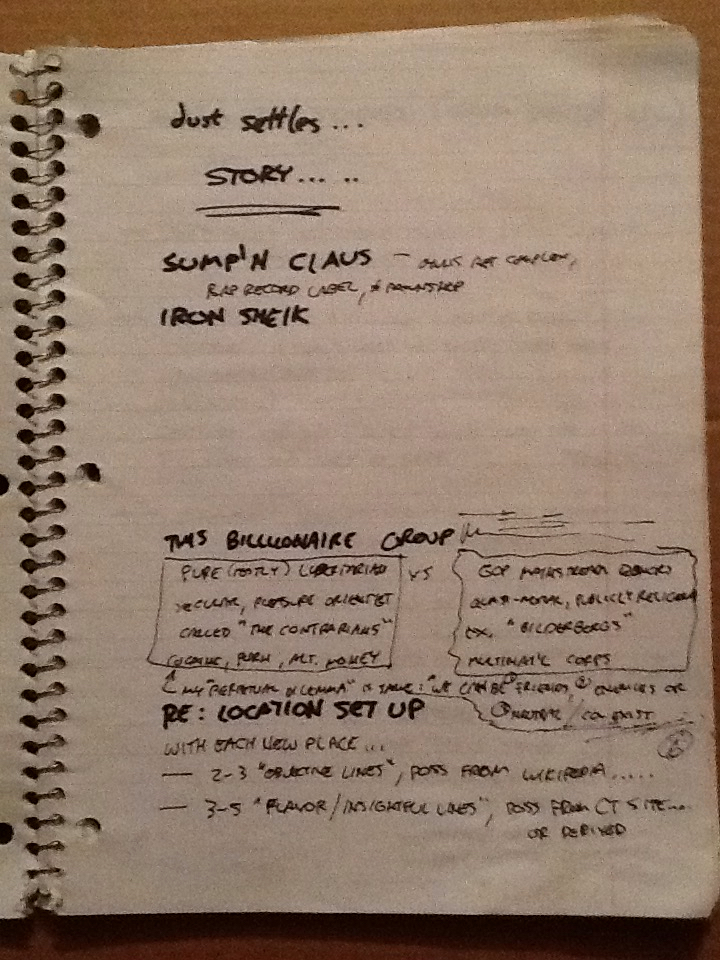 dust settles...
STORY... ..
SUMP'N CLAUS - OWNS
RAP RECORD LABEL, & PAWNSHOP
IRON SHEIK
THIS BILLIONAIRE GROUP
PURE (MOSTLY) LIBERTARIAN VS GOP MAINSTREAM
SECULAR, PLEASURE ORIENTED QUASI-MORAL, PUBLICLY RELIGIOUS
CALLED "THE CONTRARIANS" EX, "BILDERBERGS"
COCAINE, PORN, ALT. MONEY MULTINAT'L CORPS
MY "PERPETUAL DILEMMA" IS SAME: "WE CAN BE ① FRIENDS, ② ENEMIES OR
RE: LOCATION SET UP ③ NEUTRAL / CO-EXIST
WITH EACH NEW PLACE...
— 2-3 "OBJECTIVE LINES", POSS FROM WIKIPEDIA.....
— 3-5 "FLAVOR/INSIGHTFUL LINES", POSS FROM CT SITE...
OR DERIVED